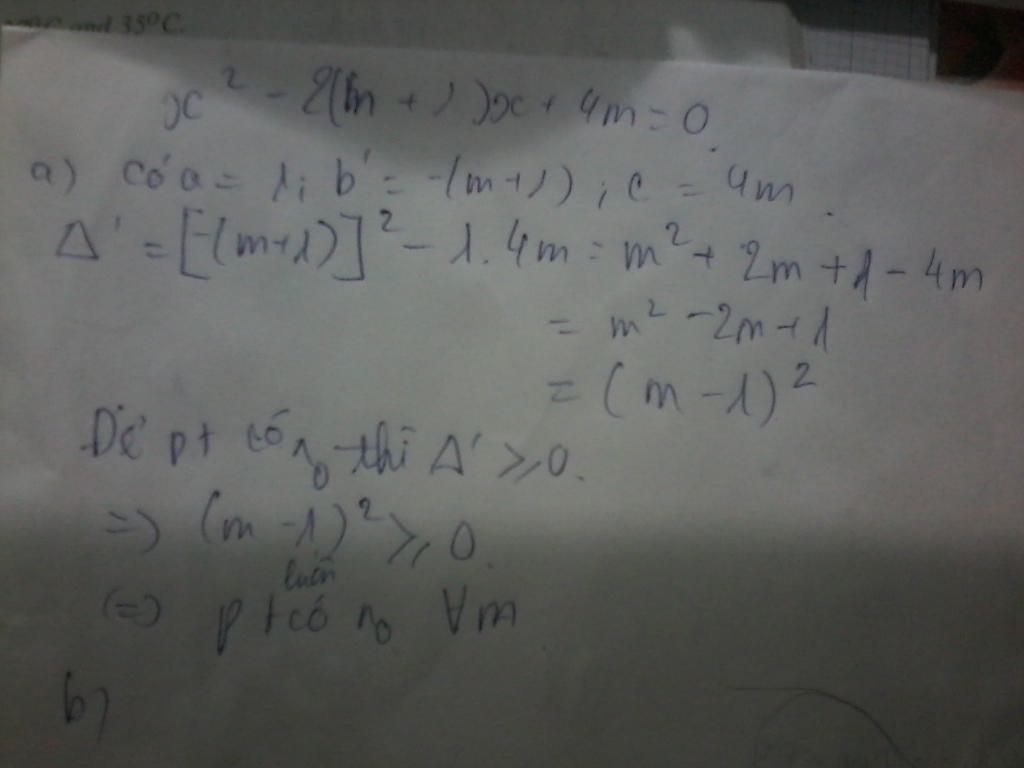 and 35°C.
x² - 2(m + 1)x + 4m = 0.
a) có a = 1; b' = -(m+1); c = 4m.
Δ' = [-(m+1)]² - 1. 4m = m² + 2m + 1 - 4m
= m² - 2m + 1
= (m - 1)²
Để pt có n₀ thì Δ' ≥ 0.
=> (m - 1)² ≥ 0.
luôn
(=) pt có n₀ ∀m
b)